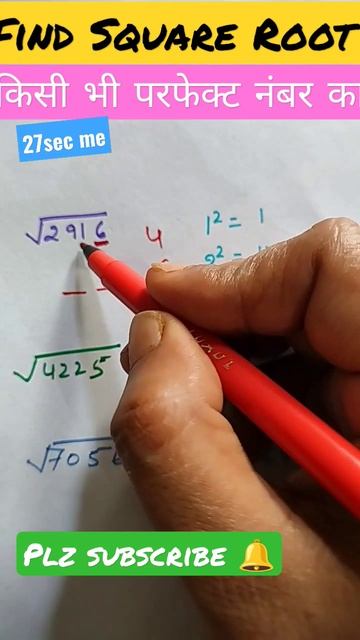 FIND SQUARE ROOT
किसी भी परफेक्ट नंबर का
27sec me
√2916 4 1² = 1
2² =
√4225
√705
PLZ SUBSCRIBE 🔔